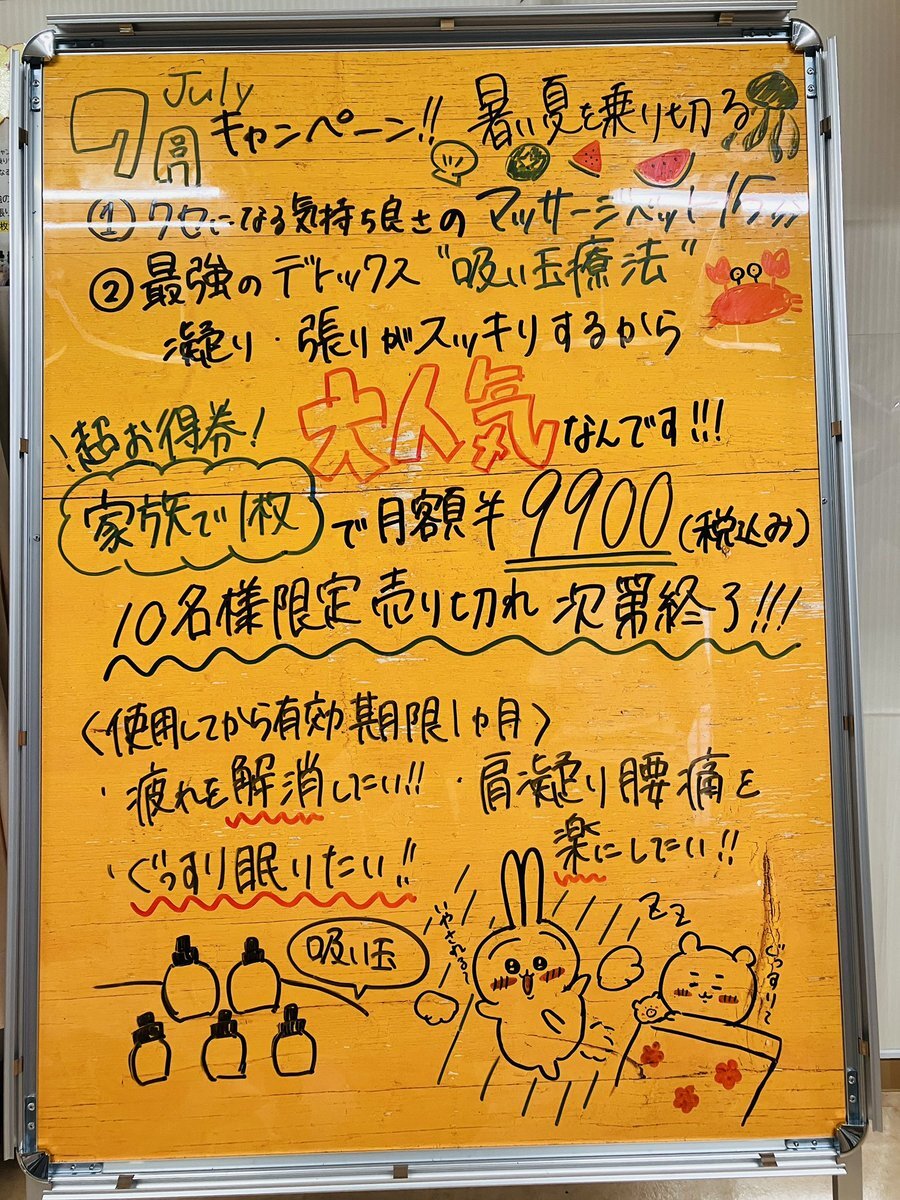 7月 July キャンペーン!! 暑い夏を乗り切る
① クセになる気持ち良さのマッサージベッド15分
② 最強のデトックス“吸い玉療法”
凝り・張りがスッキリするから
\超お得券! 大人気なんです!!!
家族で1枚で月額¥9900(税込み)
10名様限定売り切れ次第終了!!!
〈使用してから有効期限1ヵ月〉
・疲れを解消したい!! ・肩凝り腰痛を
楽にしたい!!
・ぐっすり眠りたい!!
吸い玉
いやされる~
ZZ
ぐっすり~